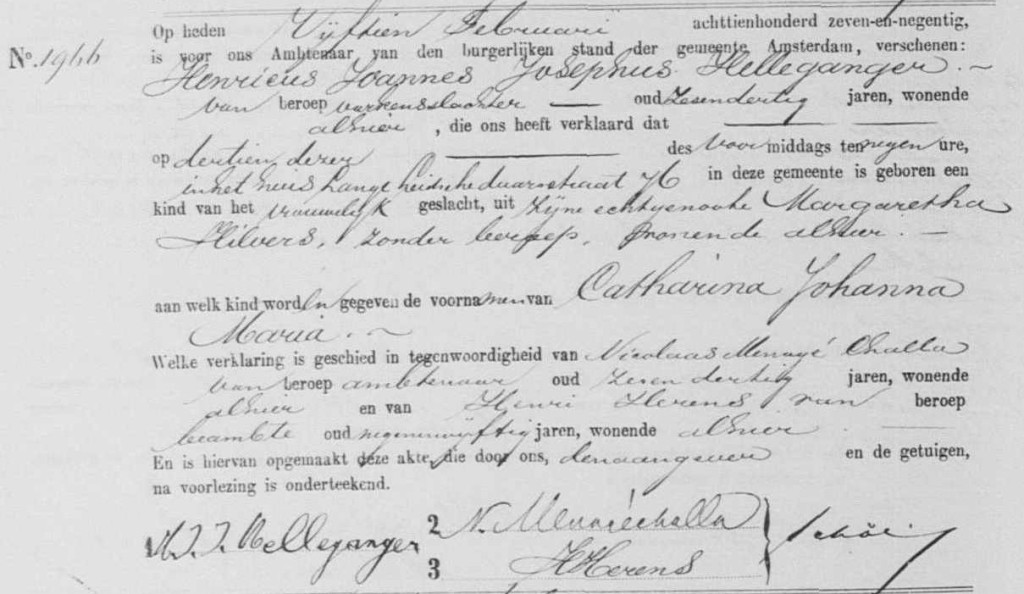 Op heden Vijftien Februari achttienhonderd zeven-en-negentig,
No. 1966 is voor ons Ambtenaar van den burgerlijken stand der gemeente Amsterdam, verschenen:
Henricus Joannes Josephus Helleganger
van beroep varkensslachter oud zesendertig jaren, wonende
alhier, die ons heeft verklaard dat
op dertien dezer des voormiddags te negen ure,
in het huis Lange Leidschedwarsstraat 76 in deze gemeente is geboren een
kind van het vrouwelijk geslacht, uit zijne echtgenoote Margaretha
Hilvers, zonder beroep, wonende alhier.
aan welk kind worden gegeven de voornamen van Catharina Johanna
Maria.
Welke verklaring is geschied in tegenwoordigheid van Nicolaas Menagé Challa
van beroep ambtenaar oud zeven dertig jaren, wonende
alhier en van Henri Herens van beroep
beambte oud negenenvijftig jaren, wonende alhier
En is hiervan opgemaakt deze akte, die door ons, den aangever en de getuigen,
na voorlezing is onderteekend.
H.J.J. Helleganger 2 N. Menagéchalla
3 HHerens